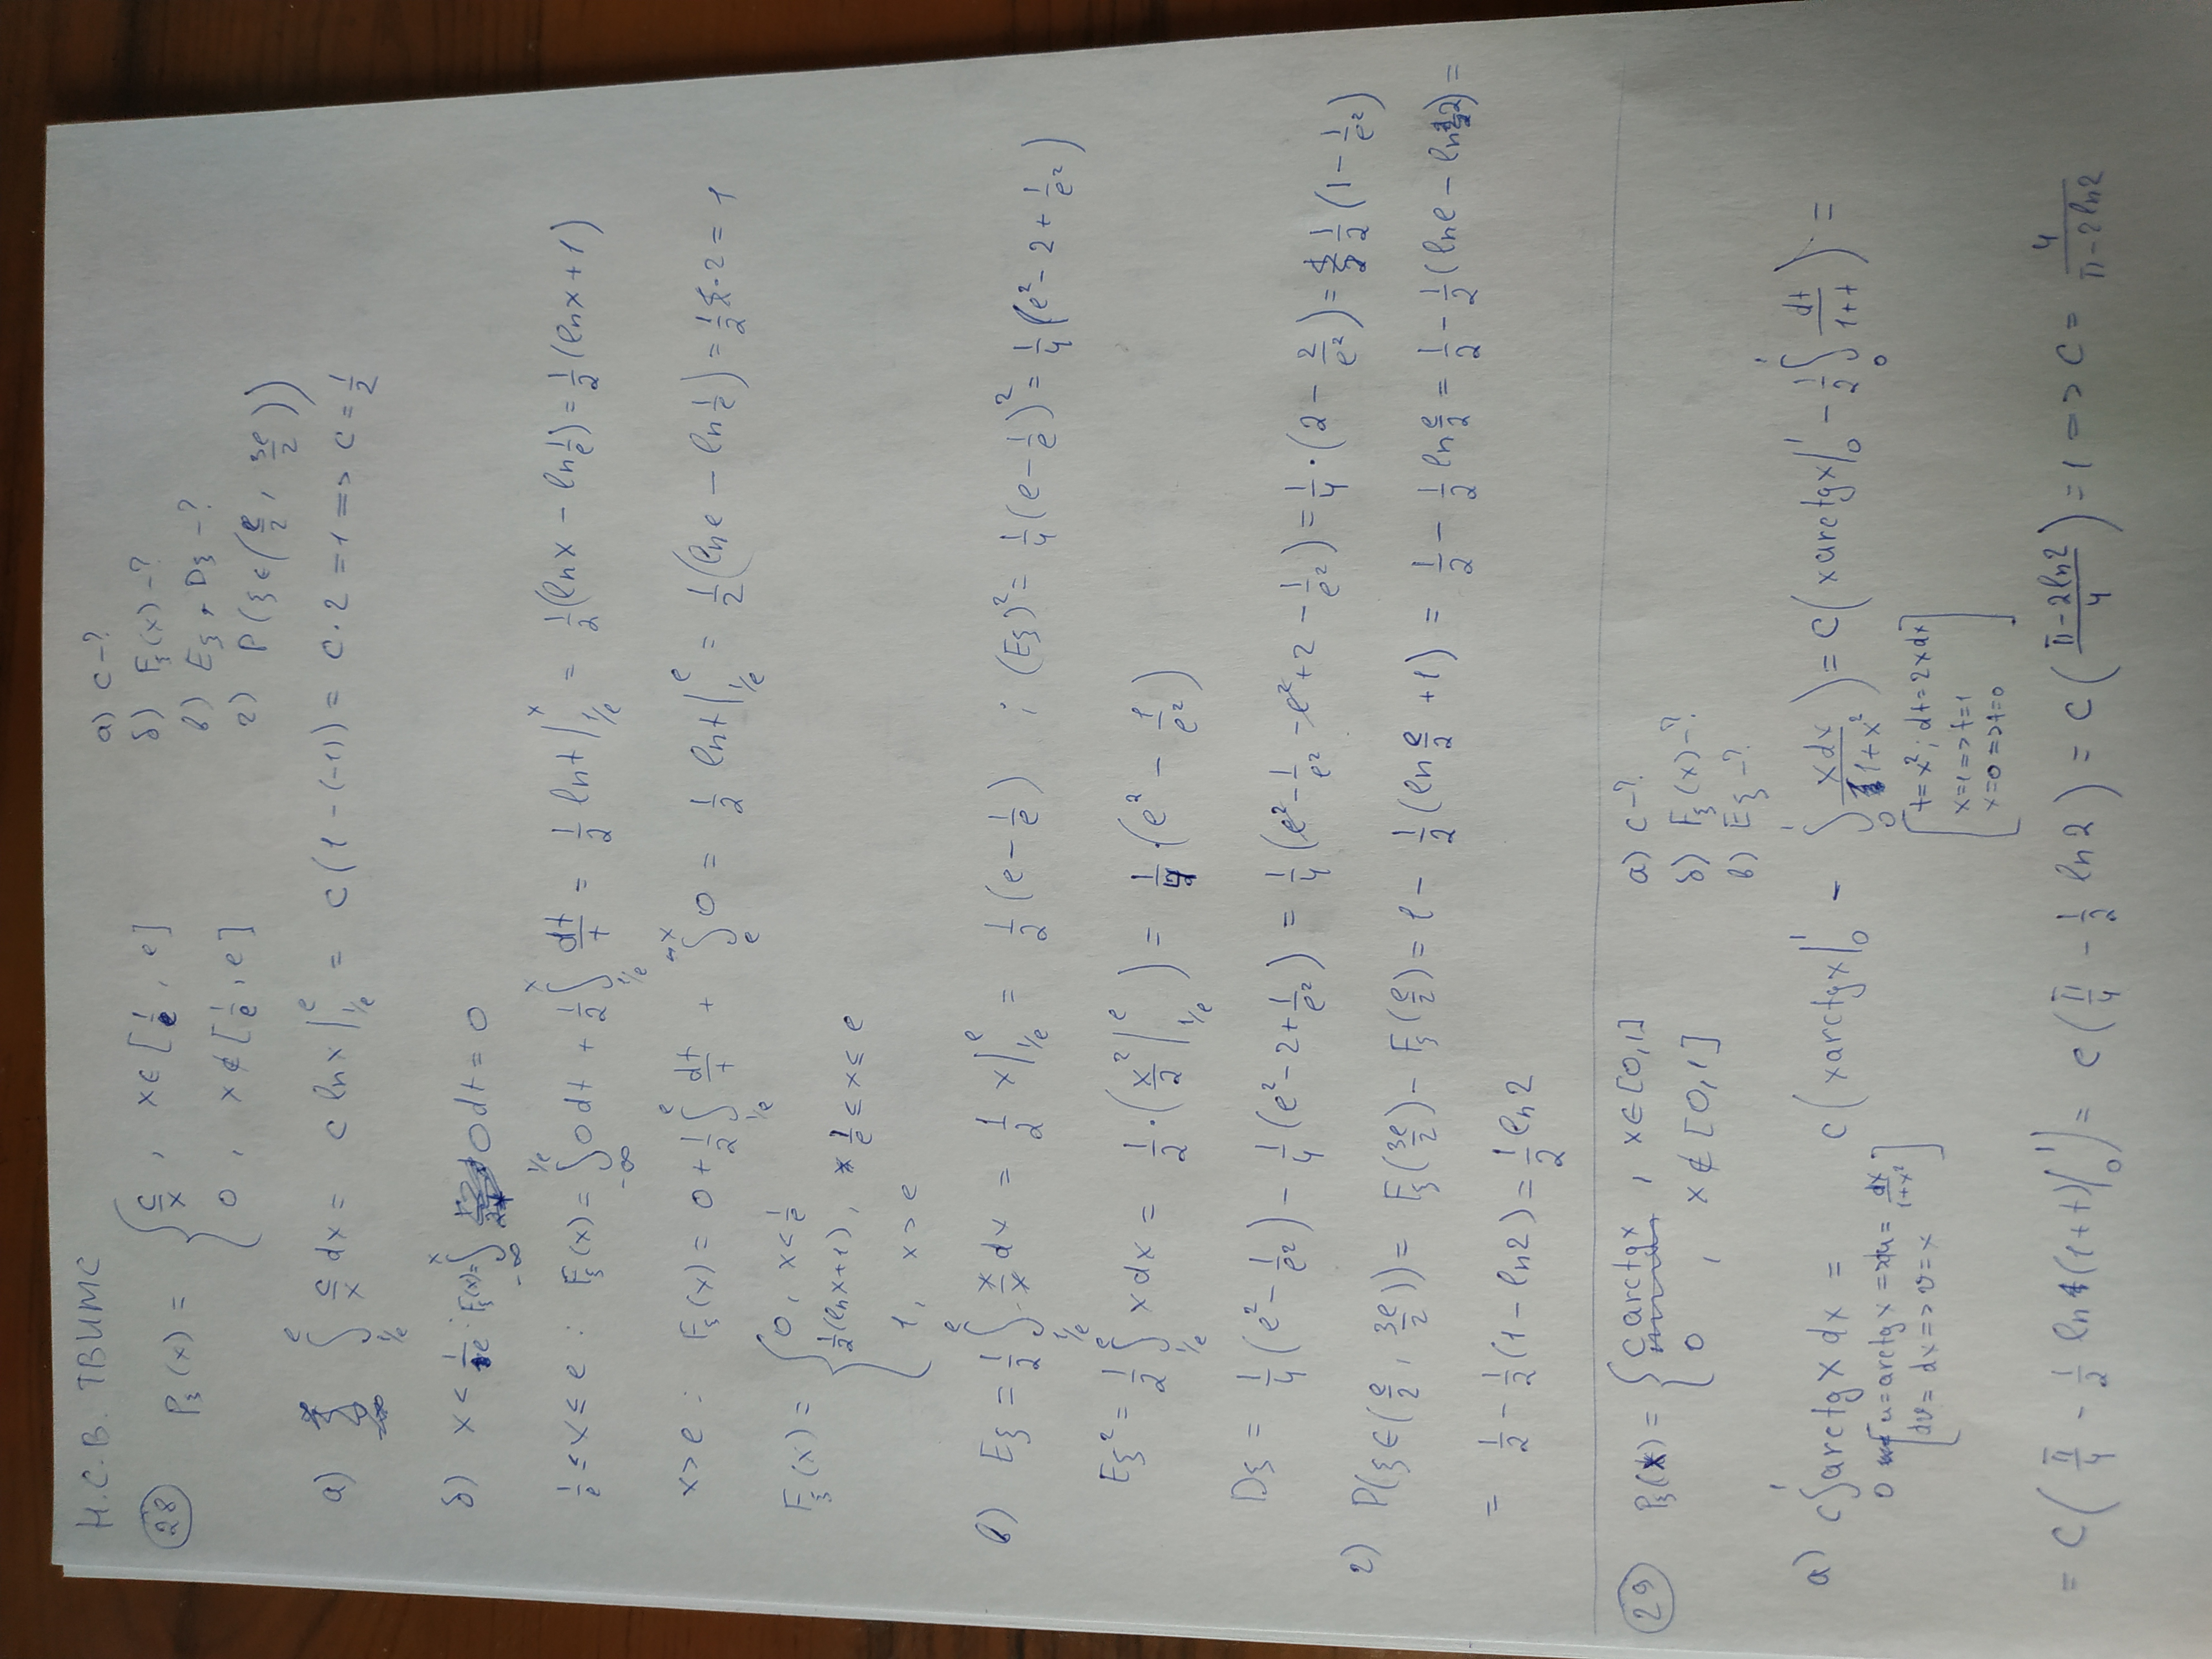 Н.С.В. ТВИМС
28 P_ξ(x) = { c/x , x∈[1/e , e]
0 , x∉[1/e , e]
а) c -?
б) F_ξ(x) -?
в) Eξ, Dξ -?
г) P(ξ∈(e/2 , 3e/2))
а) ∫_{1/e}^{e} c/x dx = c ln x |_{1/e}^{e} = c(1-(-1)) = c·2 = 1 => c = 1/2
б) x < 1/e : F_ξ(x) = ∫_{-∞}^{x} 0 dt = 0
1/e ≤ x ≤ e : F_ξ(x) = ∫_{-∞}^{1/e} 0 dt + 1/2 ∫_{1/e}^{x} dt/t = 1/2 ln t |_{1/e}^{x} = 1/2 (ln x - ln 1/e) = 1/2 (ln x + 1)
x > e : F_ξ(x) = 0 + 1/2 ∫_{1/e}^{e} dt/t + ∫_{e}^{x} 0 = 1/2 ln t |_{1/e}^{e} = 1/2 (ln e - ln 1/e) = 1/2 · 2 = 1
F_ξ(x) = { 0, x < 1/e
1/2 (ln x + 1), 1/e ≤ x ≤ e
1, x > e
в) Eξ = 1/2 ∫_{1/e}^{e} x/x dx = 1/2 x |_{1/e}^{e} = 1/2 (e - 1/e) ; (Eξ)² = 1/4 (e - 1/e)² = 1/4 (e² - 2 + 1/e²)
Eξ² = 1/2 ∫_{1/e}^{e} x dx = 1/2 · (x²/2 |_{1/e}^{e}) = 1/4 · (e² - 1/e²)
Dξ = 1/4 (e² - 1/e²) - 1/4 (e² - 2 + 1/e²) = 1/4 (e² - 1/e² - e² + 2 - 1/e²) = 1/4 · (2 - 2/e²) = 1/2 (1 - 1/e²)
г) P(ξ∈(e/2 , 3e/2)) = F_ξ(3e/2) - F_ξ(e/2) = 1 - 1/2 (ln e/2 + 1) = 1/2 - 1/2 ln e/2 = 1/2 - 1/2 (ln e - ln 2) =
= 1/2 - 1/2 (1 - ln 2) = 1/2 ln 2
29 P_ξ(x) = { c arctg x , x∈[0,1]
0 , x∉[0,1]
а) c -?
б) F_ξ(x) -?
в) Eξ -?
а) c ∫_{0}^{1} arctg x dx = c (x arctg x |_{0}^{1} - ∫_{0}^{1} xdx/(1+x²)) = c (x arctg x |_{0}^{1} - 1/2 ∫_{0}^{1} dt/(1+t)) =
[u = arctg x => du = dx/(1+x²)
dv = dx => v = x]
[t = x² ; dt = 2xdx
x=1 => t=1
x=0 => t=0]
= c (π/4 - 1/2 ln(1+t) |_{0}^{1}) = c (π/4 - 1/2 ln 2) = c ((π - 2ln2)/4) = 1 => c = 4/(π - 2ln2)